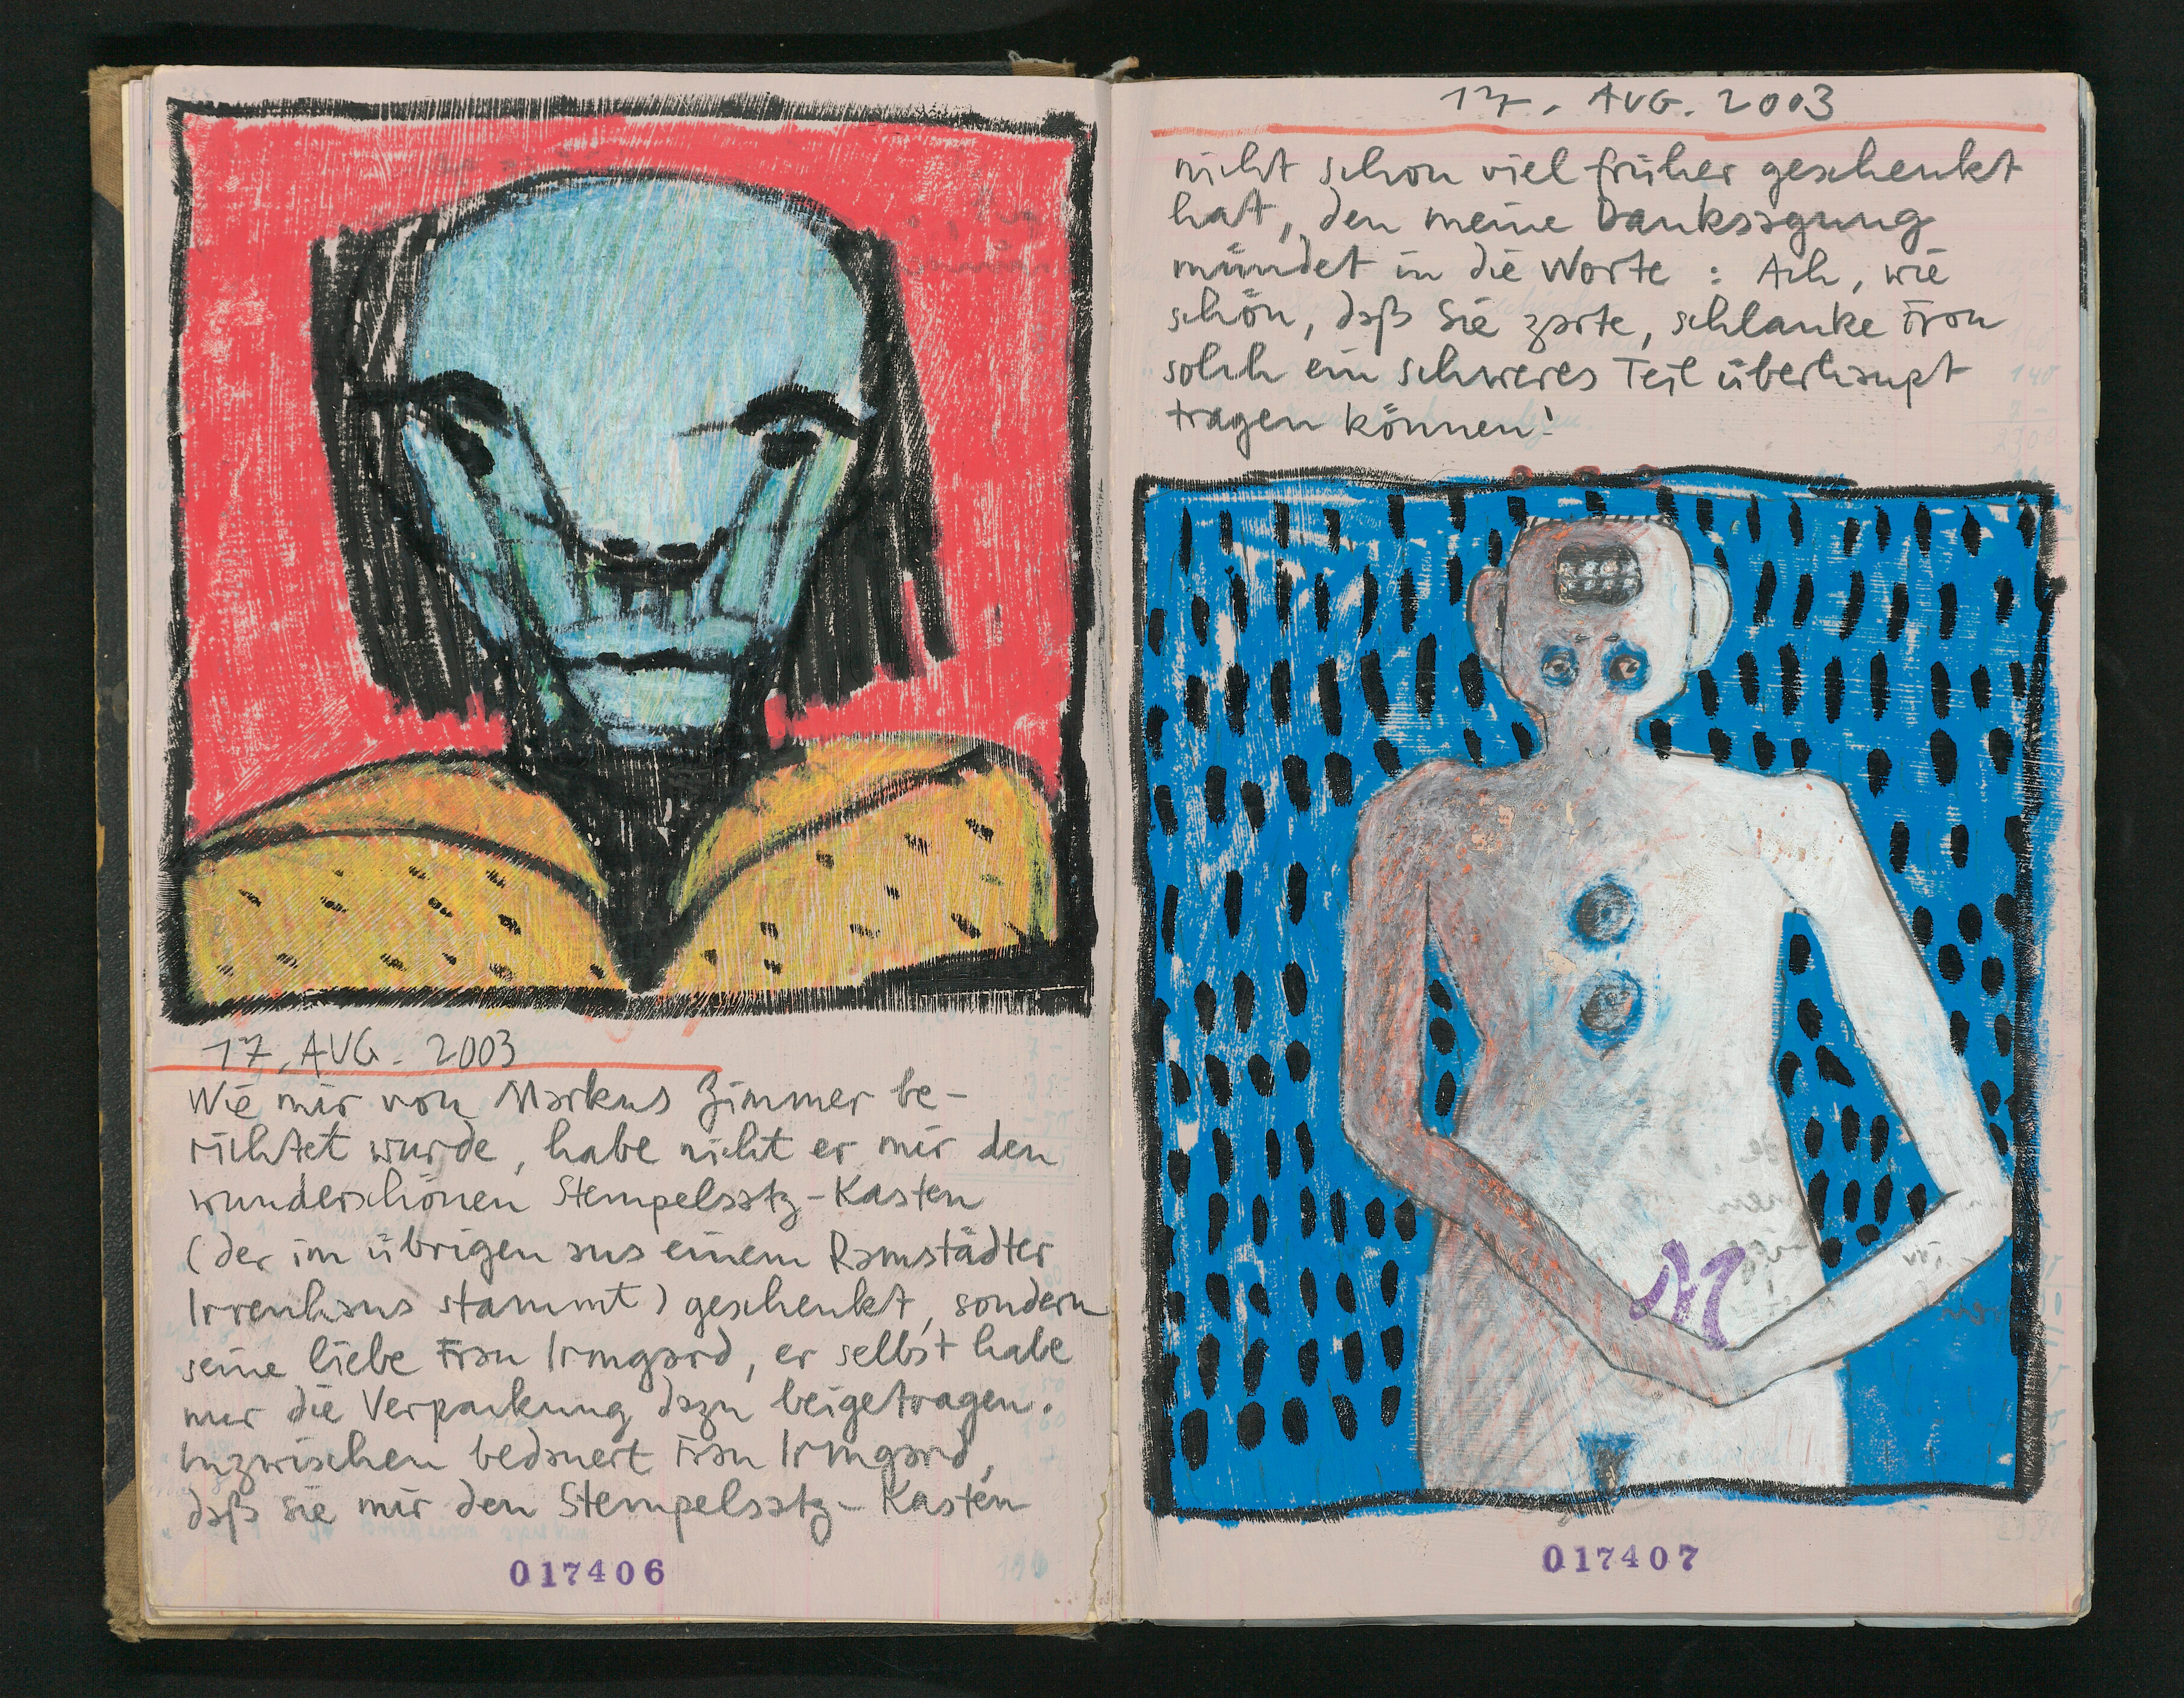 17. AUG. 2003
Wie mir von Markus Zimmer be-
richtet wurde, habe nicht er mir den
wunderschönen Stempelsatz-Kasten
(der im übrigen aus einem Ramstädter
Irrenhaus stammt) geschenkt, sondern
seine liebe Frau Irmgard, er selbst habe
nur die Verpackung dazu beigetragen.
Inzwischen bedauert Frau Irmgard,
daß sie mir den Stempelsatz-Kasten
017406
17. AUG. 2003
nicht schon viel früher geschenkt
hat, den meine Danksagung
mündet in die Worte: Ach, wie
schön, daß Sie zarte, schlanke Frau
solch ein schweres Teil überhaupt
tragen können!
M
017407